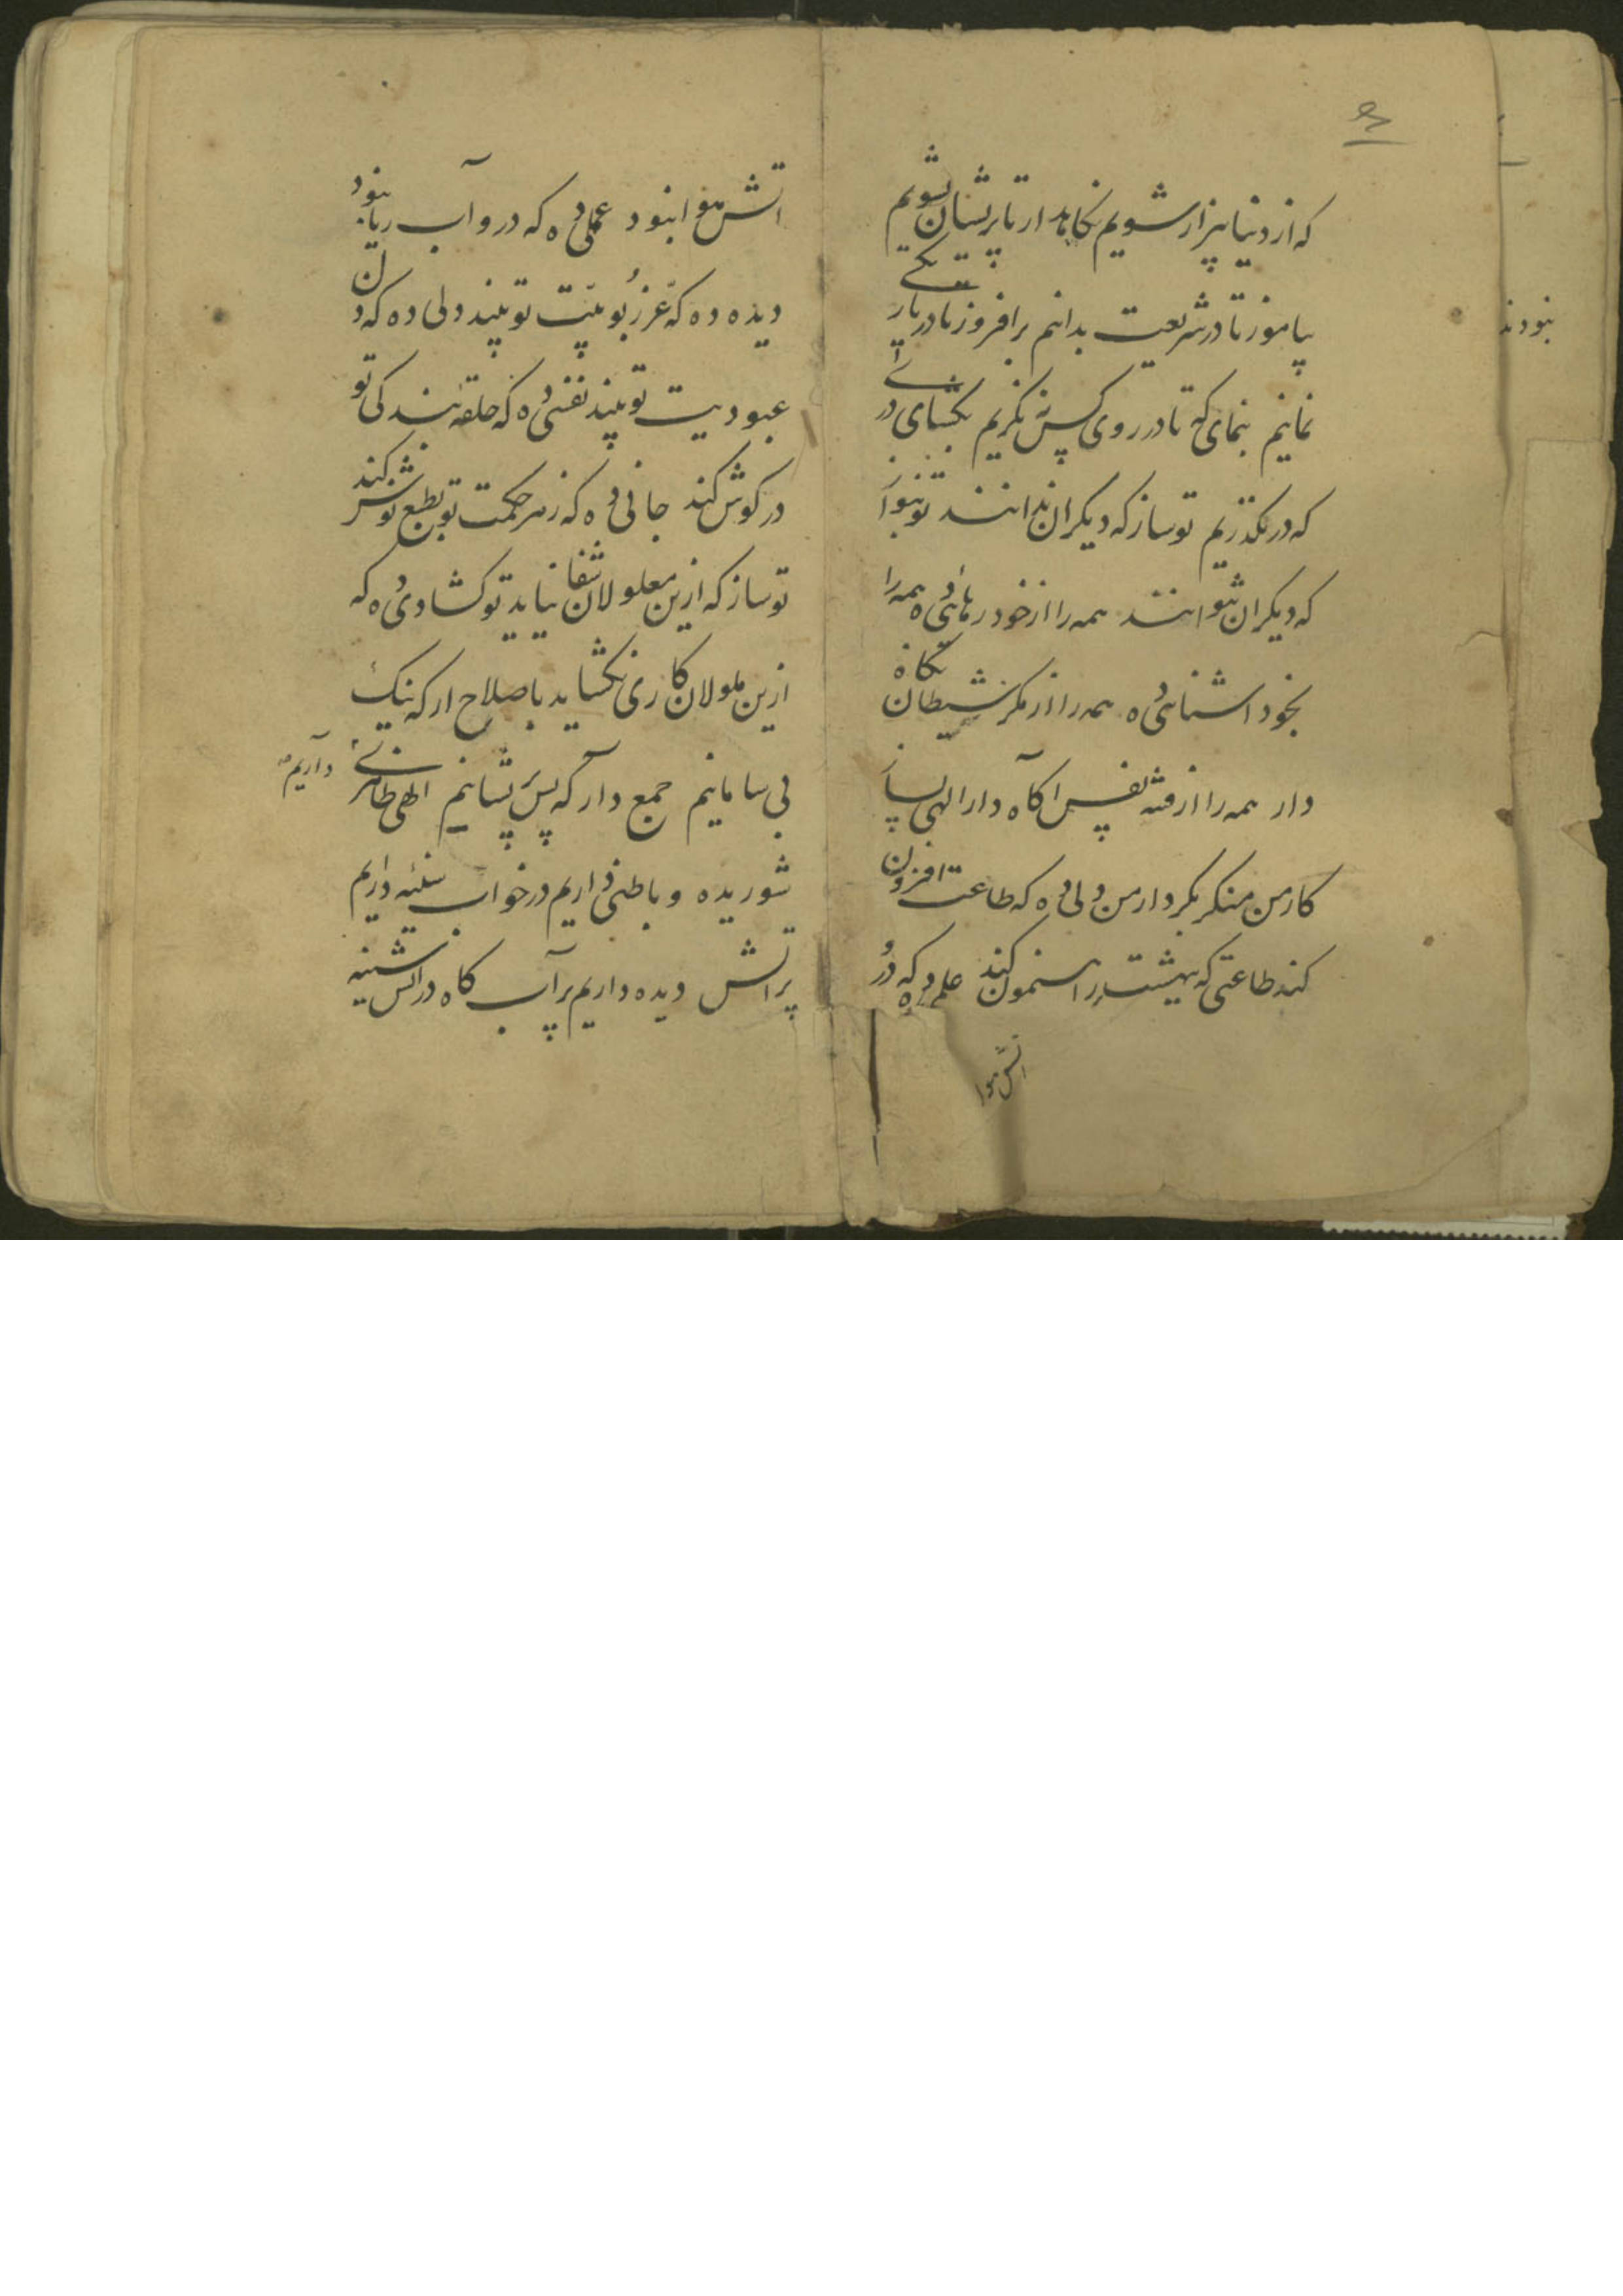 که از دنیا بیزار شویم نگاهدار تا پریشان نشویم
بیاموز تا در شریعت بدانیم برافروز تا در تاریکی
نمانیم بنمای که تا در روی کس ننگریم بکشای در
که در بگذریم تو ساز که دیگران ندانند تو بنواز
که دیگران نتوانند همه را از خود رهائی ده همه را
بخود آشنائی ده همه را از مکر شیطان نگاه
دار همه را از فتنه نفس آگاه دار الهی بساز
کار من منگر بکردار من دلی ده که طاعت افزون
کند طاعتی که بهشت را هنمون کند علمی ده که درو
اتش هوا
اتش هوا نبود عملی ده که درو آب ریا نبود
دیده ده که عز ربوبیت تو بیند دلی ده که دل
عبودیت تو بیند نفسی ده که حلقه بندکی تو
در کوش کند جانی ده که زهر حکمت تو بطبع نوش کند
تو ساز که ازین معلولان شفا نیاید تو کشادی ده که
ازین ملولان کاری نکشاید باصلاح ار که نیک
بی سامانیم جمع دار که بس پریشانیم الهی ظاهری داریم
شوریده و باطنی داریم در خواب سینه داریم
پر اتش دیده داریم پر آب کاه در اتش سینه
نبودند